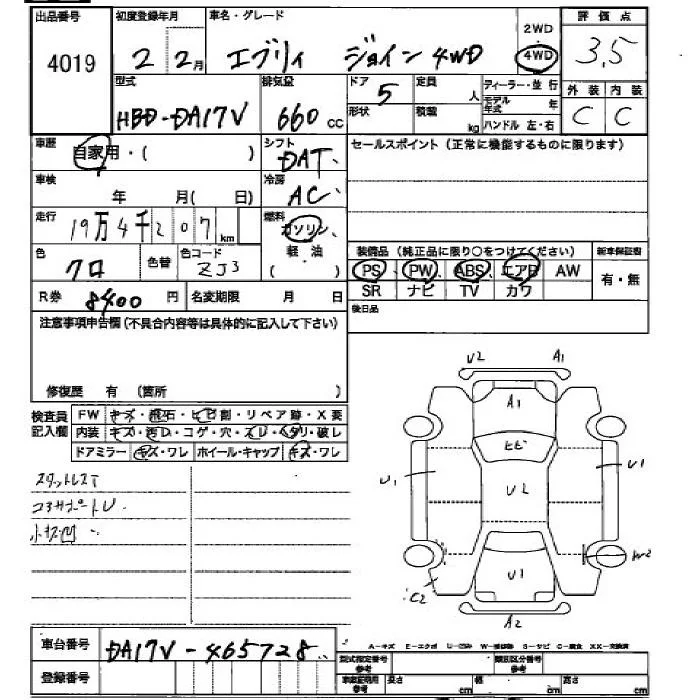 出品番号 4019
初度登録年月 2 2月
車名・グレード エブリィ ジョイン 4WD
2WD
4WD
評価点 3.5
型式 HBD-DA17V
排気量 660 cc
ドア 5
形状
定員 人
積載 kg
ディーラー・並行
モデル年式 年
ハンドル 左・右
外装 内装
C C
車歴 自家用・( )
シフト DAT
セールスポイント(正常に機能するものに限ります)
車検 年 月( 日)
冷房 AC
走行 19万4千207 km
燃料 ガソリン
軽・油
( )
色 クロ
色替
色コード ZJ3
装備品(純正品に限り○をつけてください)
新車保証書
PS PW ABS エアB AW
有・無
SR ナビ TV カワ
R券 8400 円
名変期限 月 日
後日品
注意事項申告欄(不具合内容等は具体的に記入して下さい)
修復歴 有 (箇所 )
検査員記入欄
FW キズ・飛石・ヒビ割・リペア跡・X要
内装 キズ・汚レ・コゲ・穴・スレ・ヘタリ・破レ
ドアミラー キズ・ワレ ホイール・キャップ キズ・ワレ
U2 A1
A1
ヒビ
U1 U2 U1
U1
C2 W2
A2
スタットレスT
コーナーサポートU
小板凹
A-キズ E-エクボ U-凹み W-補修跡 S-サビ C-腐食 XX-交換済
車台番号 DA17V-465728
登録番号
型式指定番号参考
類別区分番号参考
車庫証明用参考 長さ cm 幅 cm 高さ cm